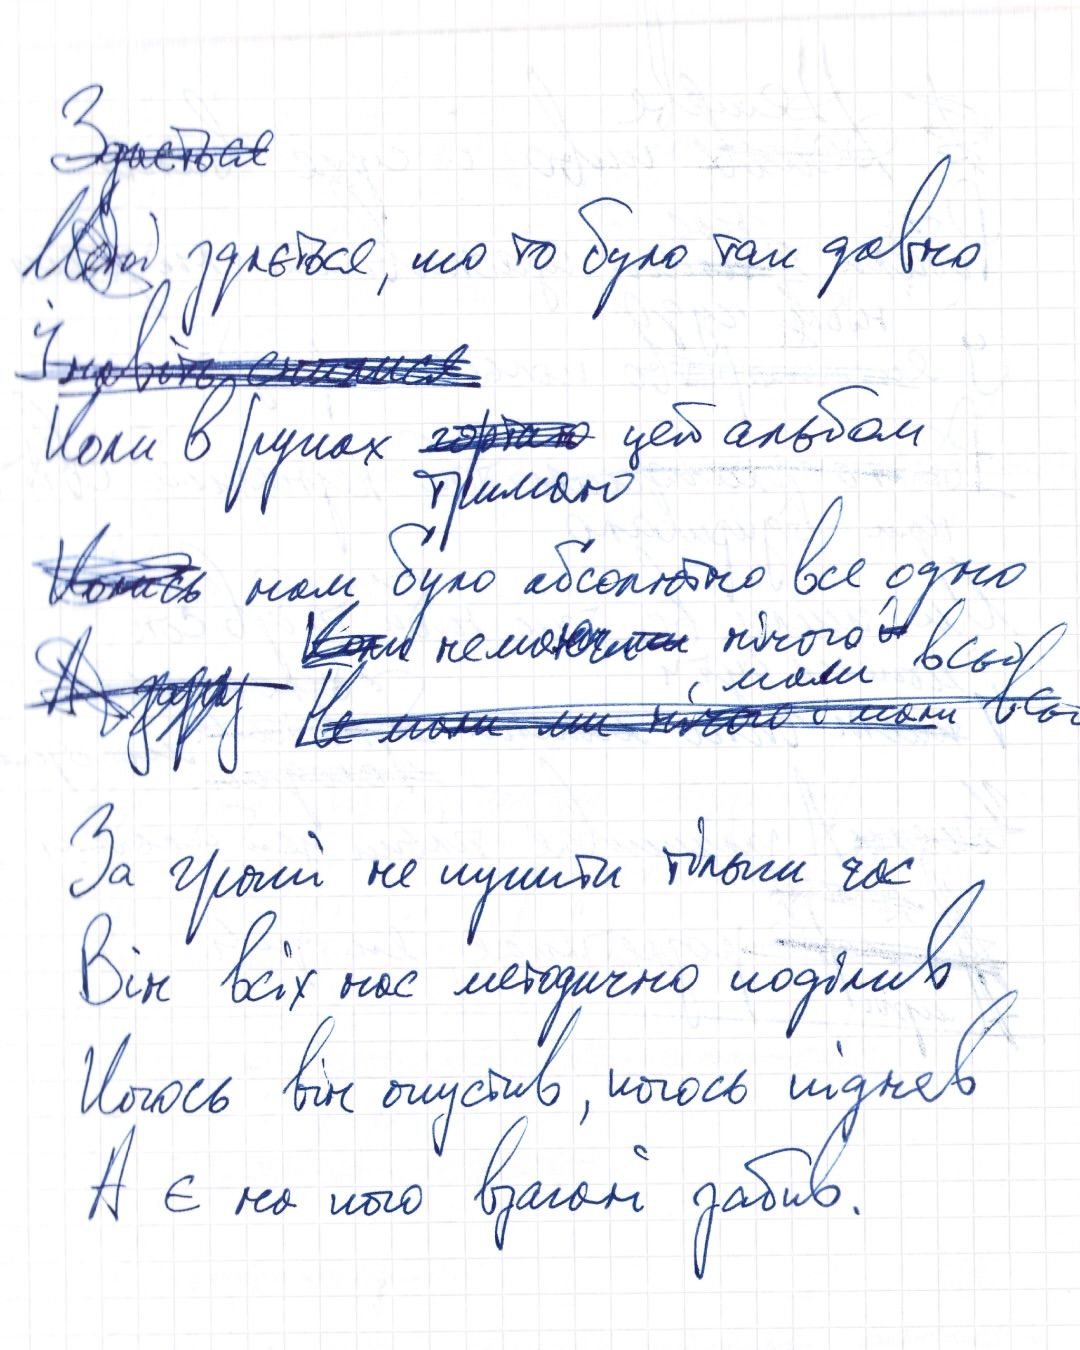 Здається
Мені здається, що то було так давно
І навіть снилися
Коли в руках гортаю цей альбом
тримаю
Колись нам було абсолютно все одно
Коли немаючи нічого й
А зараз , мали всьо
Не мали ми нічого мали всьо
За гроші не купити тільки час
Він всіх нас методично поділив
Когось він опустив, когось підняв
А є на кого взагалі забив.